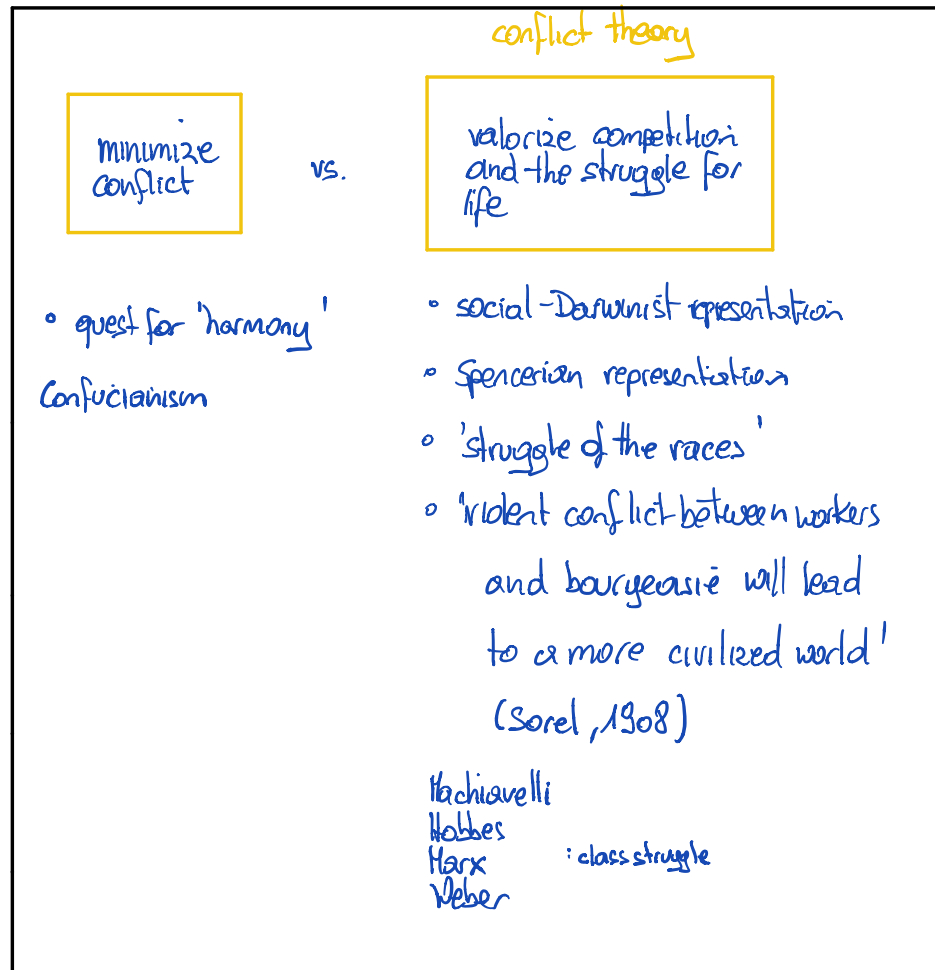 conflict theory
minimize
conflict
vs.
valorize competition
and the struggle for
life
• quest for 'harmony'
Confucianism
• social-Darwinist representation
• Spencerian representation
• 'struggle of the races'
• 'violent conflict between workers
and bourgeoisie will lead
to a more civilized world'
(Sorel, 1908)
Machiavelli
Hobbes
Marx : class struggle
Weber